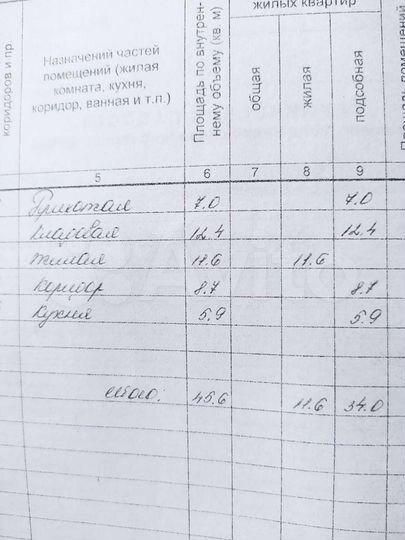 жилых квартир
коридоров и пр.
Назначений частей
помещений (жилая
комната, кухня,
коридор, ванная и т.п.)
Площадь по внутрен-
нему объему (кв. м)
общая
жилая
подсобная
5 6 7 8 9
Прихожая 7.0 7.0
Кладовая 12.4 12.4
Жилая 11.6 11.6
Коридор 8.7 8.7
Кухня 5.9 5.9
Итого: 45.6 11.6 34.0